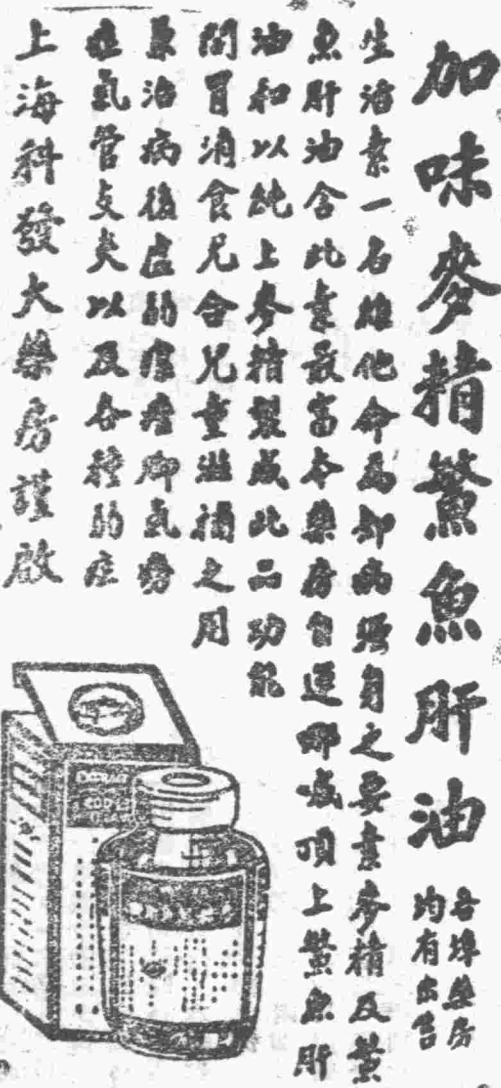 加味麥精鰵魚肝油
各埠藥房
均有出售
生活素一名維他命為却病强身之要素麥精及鰵
魚肝油含此素最富本藥房自運哪喊頂上鰵魚肝
油和以純上麥精製成此品功能
開胃消食尤合兒童滋補之用
兼治病後虛弱瘰癧脚氣癆
症氣管支炎以及各種弱症
上海科發大藥房謹啟
EXTRACT
COD LI